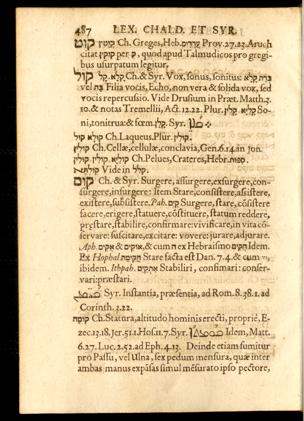 487 LEX. CHALD. ET SYR.
קוט Ch. Greges, Heb. עדרים Prov. 27.23. Aruch
citat קוטין per ק, quod apud Talmudicos pro gregi
bus usurpatum legitur.
קול קלא, קל Ch. & Syr. Vox, sonus, sonitus: ברת קלא
vel בת Filia vocis, Echo, non vera & solida vox, sed
vocis repercussio. Vide Drusium in Præt. Matth. 3.
10. & notas Tremellij, Act. 12.22. Plur. קלין So-
ni, tonitrua: & fœm. Syr.
Ch. Laqueus. Plur. קולין
קולין Ch. Cellæ, cellulæ, conclavia, Gen. 6.14. in Jon.
קולין Ch. Pelues, Crateres, Hebr. ספות
Vide in קלל
קום Ch. & Syr. Surgere, assurgere, exsurgere, con-
surgere, insurgere: Item Stare, consistere, assistere,
existere, subsistere. Pah. קים Surgere, stare, cõsistere
facere, erigere, statuere, cõstituere, statum reddere,
præstare, stabilire, confirmare: vivificare, in vita cõ-
servare: suscitare, excitare: vovere: jurare, adjurare.
Aph. אקים & אוקים, & cum ה ex Hebraismo הקים Idem.
Ex Hophal Stare facta est Dan. 7.4. & cum
ibidem. Ithpah. אתקים Stabiliri, confirmari: conser-
vari: præstari.
Syr. Instantia, præsentia, ad Rom. 8.38. 1. ad
Corinth. 3.22.
קומה Ch. Statura, altitudo hominis erecti, propriè, E-
zec. 13.18. Jer. 51.1. Hos. 11.7. Syr. Idem, Matt.
6.27. Luc. 2.52. ad Eph. 4.13. Deinde etiam sumitur
pro Passu, vel Ulna, sex pedum mensura, quæ inter
ambas manus expãsas simul mẽsurato ipso pectore,